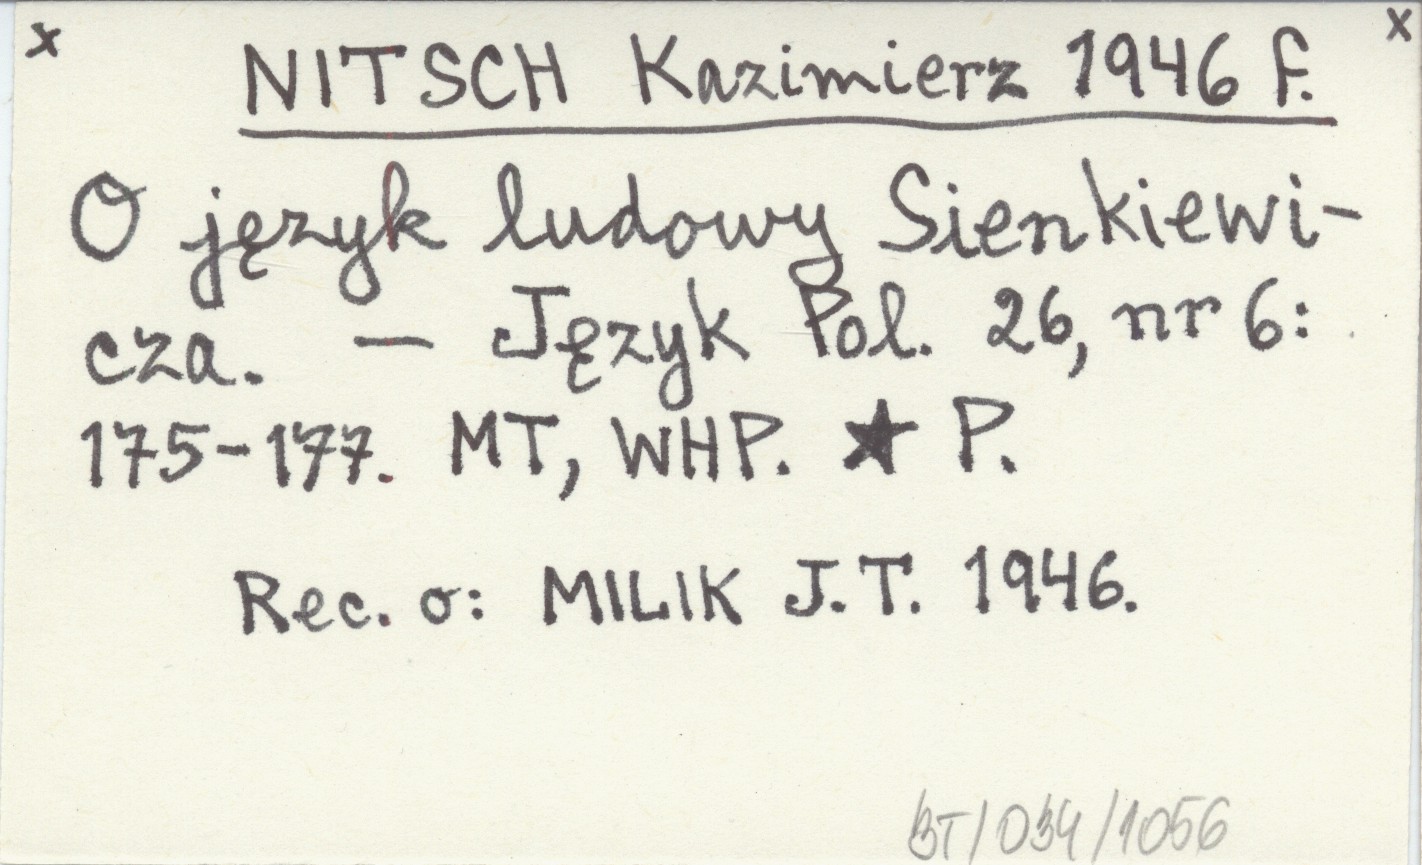 x x
NITSCH Kazimierz 1946 F.
O język ludowy Sienkiewi-
cza. — Język Pol. 26, nr 6:
175-177. MT, WHP. ★ P.
Rec. o: MILIK J.T. 1946.
BT/034/1056